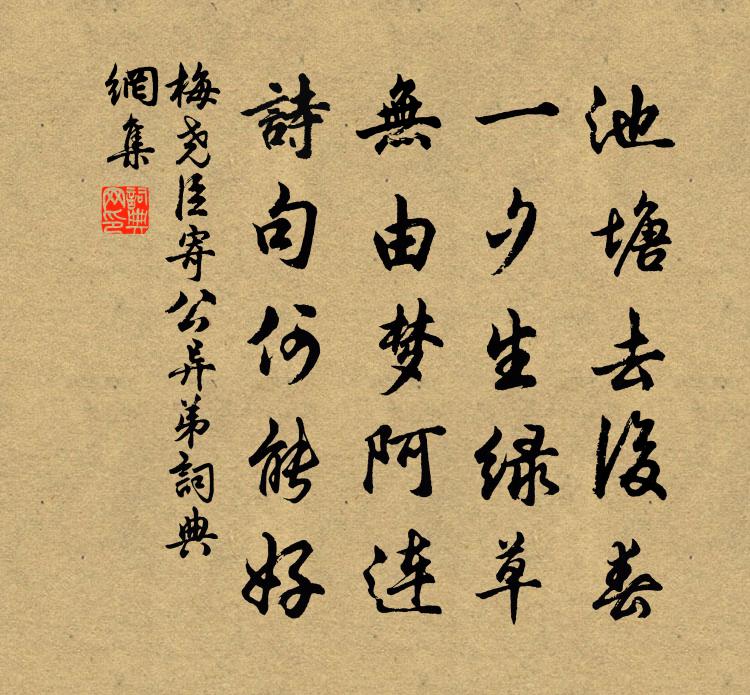 池塘去後春
一夕生緑草
無由梦阿连
詩句何能好
梅尧臣寄公异弟詞典
網集
詞典
网印